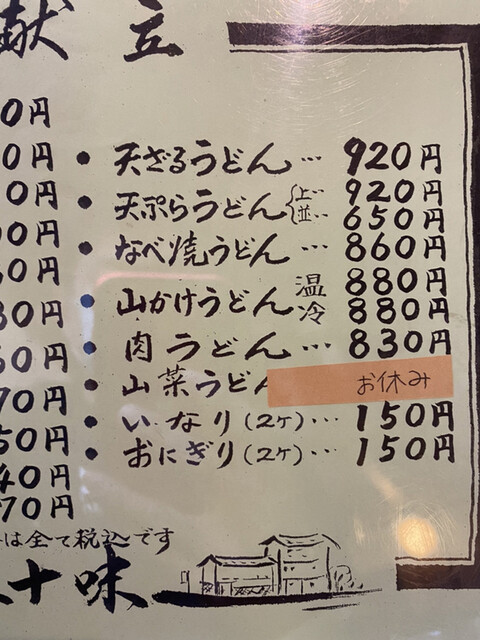 献立
0円
0円
0円
0円
50円
80円
50円
70円
50円
40円
70円
• 天ざるうどん… 920円
• 天ぷらうどん{上… 920円
並… 650円
• なべ焼うどん… 860円
• 山かけうどん 温 880円
冷 880円
• 肉うどん… 830円
• 山菜うどん お休み
• いなり(2ケ)… 150円
• おにぎり(2ケ)… 150円
は全て税込です
十味